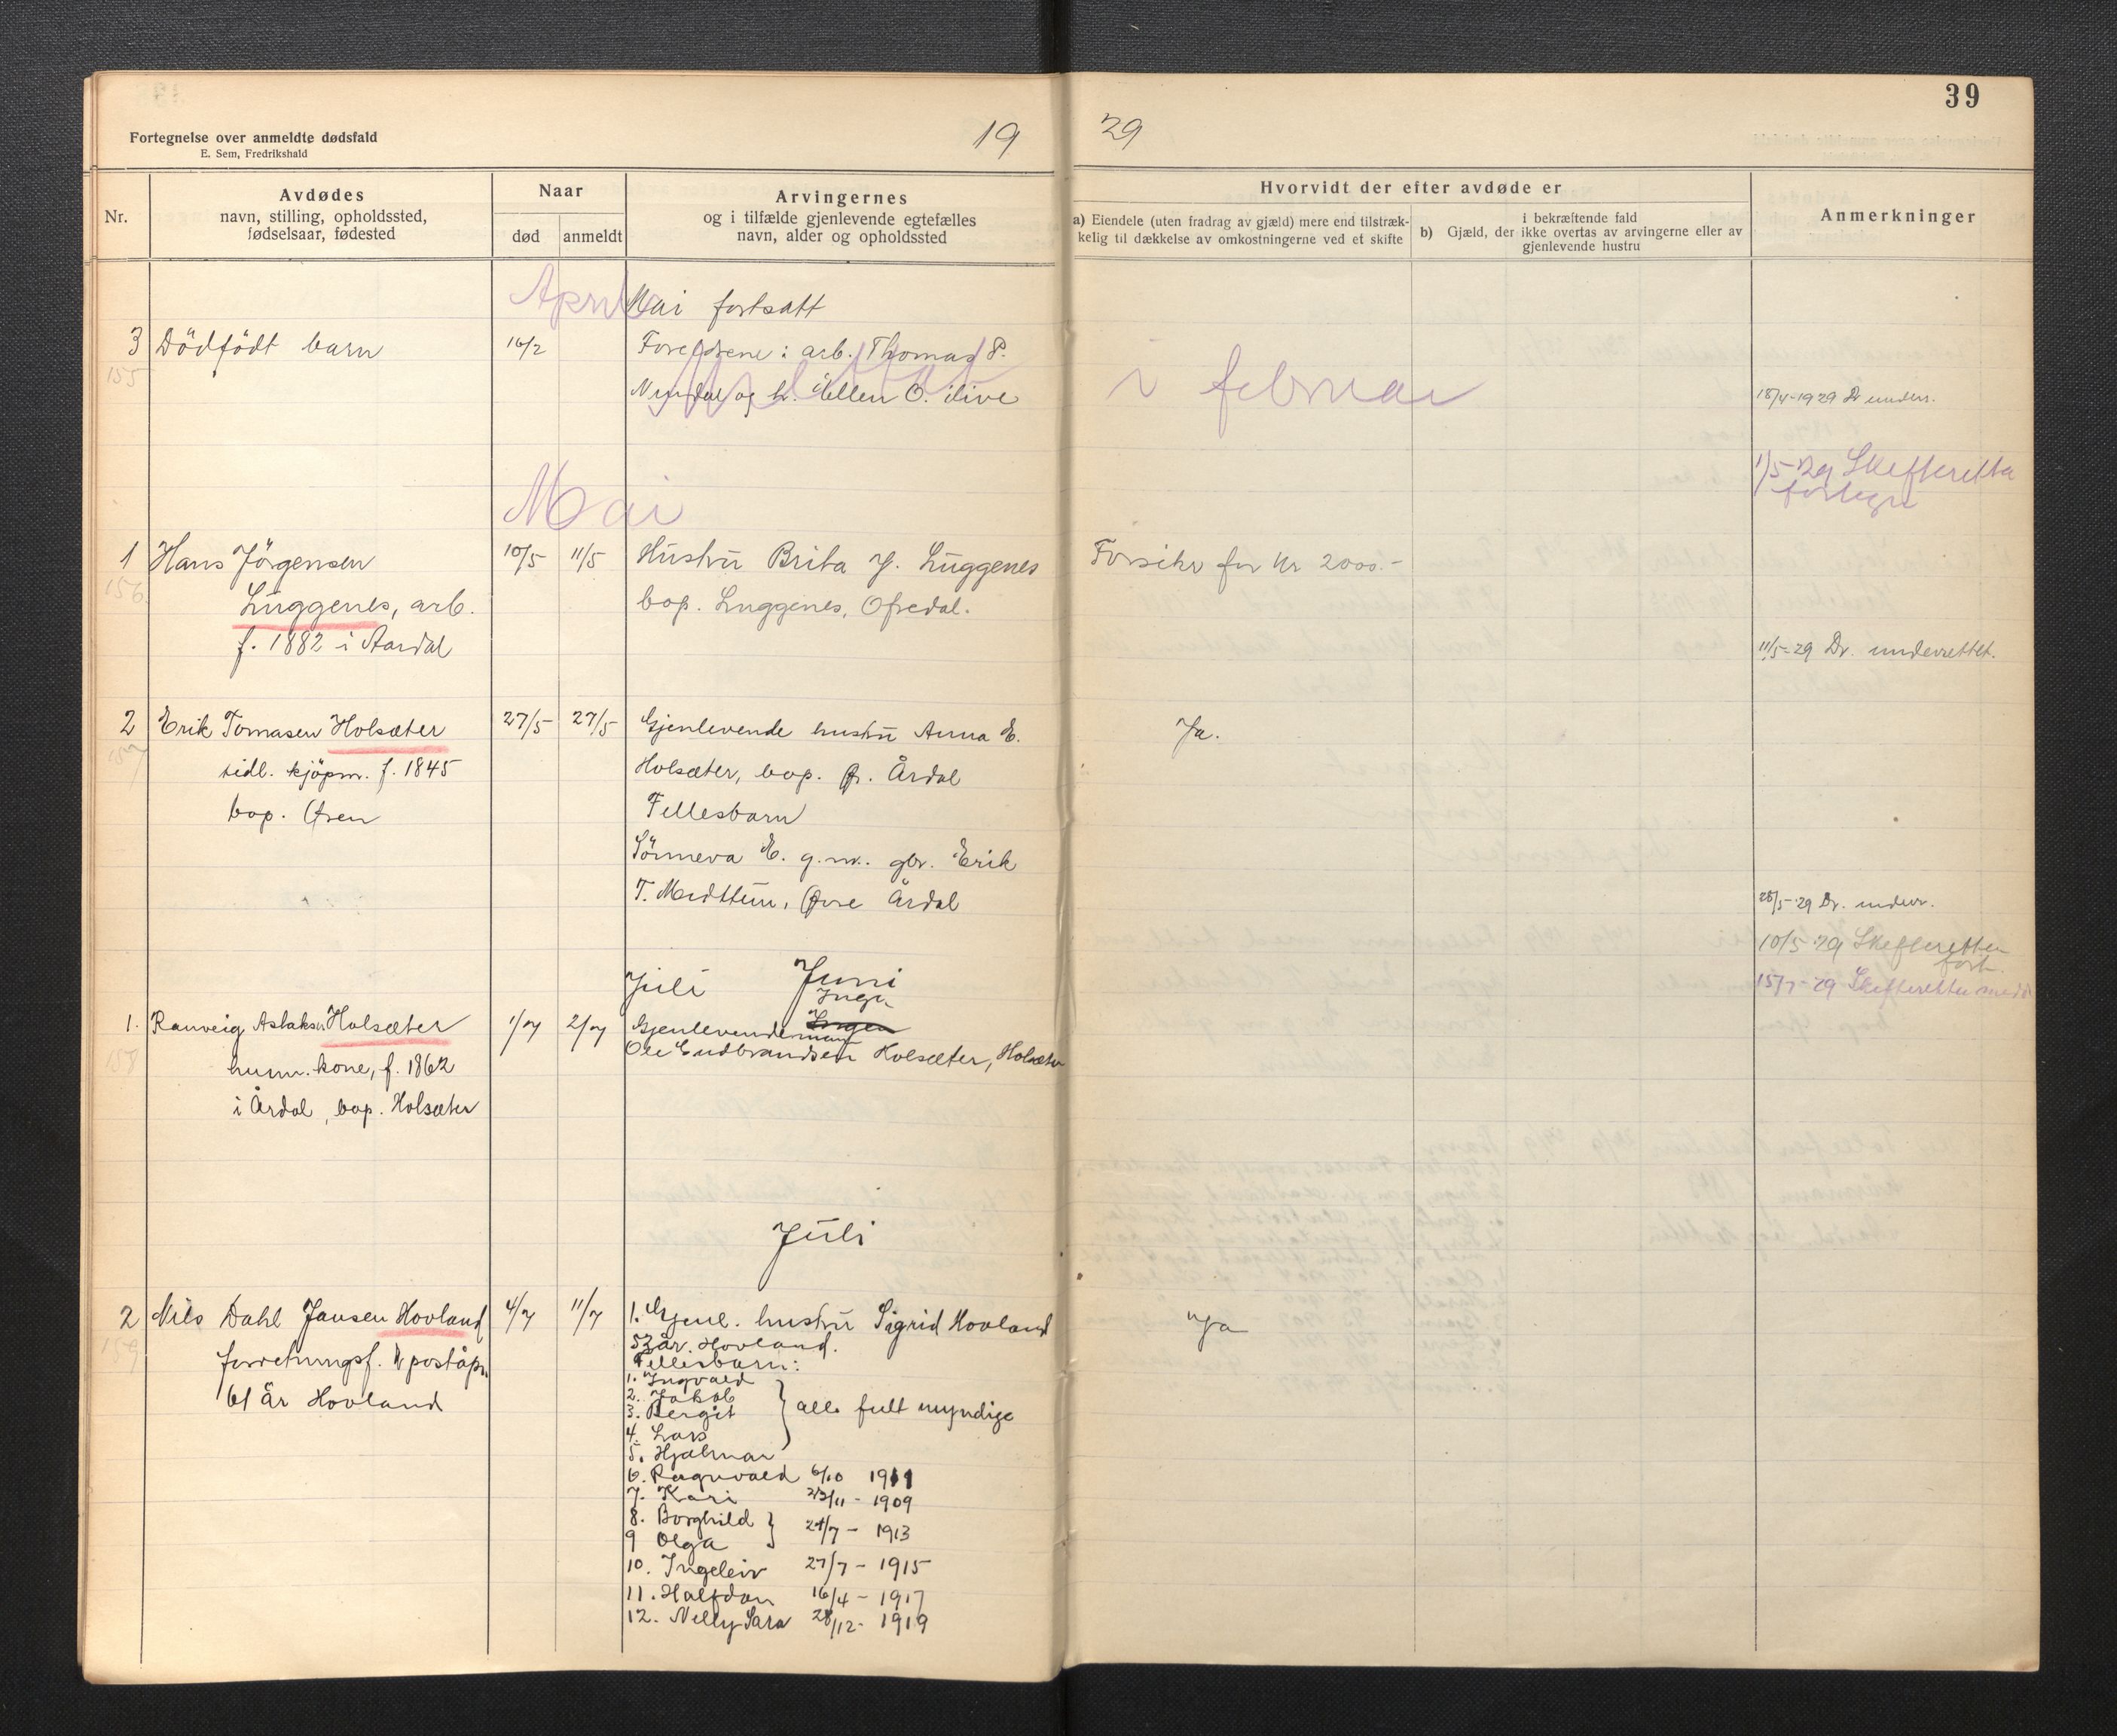 39
Fortegnelse over anmeldte dødsfald
E. Sem, Fredrikshald
19 29
Nr.
Avdødes
navn, stilling, opholdssted,
fødselsaar, fødested
Naar
død
anmeldt
Arvingernes
og i tilfælde gjenlevende egtefælles
navn, alder og opholdssted
Hvorvidt der efter avdøde er
a) Eiendele (uten fradrag av gjæld) mere end tilstræk-
kelig til dækkelse av omkostningerne ved et skifte
i bekræftende fald
b) Gjæld, der ikke overtas av arvingerne eller av
gjenlevende hustru
Anmerkninger
April
Mai fortsatt
3 Dödfödt barn 16/2 Foreldrene: arb. Thomas P.
155
og h. Ellen O. ilive
i februar
18/4-1929 Dr underr.
1/5-29 Skifteretta
Mai
1 Hans Jörgensen 10/5 11/5 Hustru Brita J. Luggenes Forsikr for Kr 2000.-
156
Luggenes, arb. bop. Luggenes, Ofredal.
f. 1882 i Aardal
11/5-29 Dr. underrettet.
2 Erik Tomasen Holsæter 27/5 27/5 Gjenlevende hustru Anna E. Ja.
157
tidl. kjöpm. f. 1845 Holsæter, bop. Ø. Årdal
bop. Øren Fellesbarn
Sönneva E. g.m. gbr. Erik
T. Midttun, Øvre Årdal
28/5-29 Dr. underr.
10/5-29 Skifteretten
Juli Juni
15/7-29 Skifteretten medd
Ingen
1. Ranveig Aslaksen Holsæter 1/7 2/7 Gjenlevende mann
158
Ole Gudbrandsen Holsæter, Holsæter
husm. kone, f. 1862
i Årdal, bop. Holsæter
Juli
2 Nils Dahl Jansen Hovland 4/7 11/7 1. Gjenl. hustru Sigrid Hovland Ja
159
53 år. Hovland.
forretningsf. & poståpn. Fellesbarn:
61 år Hovland
1. Ingvald
2. Jakob
3. Bergit } alle fult myndige
4. Lars
5. Hjalmar
6. Ragnvald 6/10 1911
7. Kari 23/11 - 1909
8. Borghild } 24/7 - 1913
9 Olga
10. Ingeleiv 27/7 - 1915
11. Halfdan 16/4 - 1917
12. Nelly Sara 28/12 - 1919